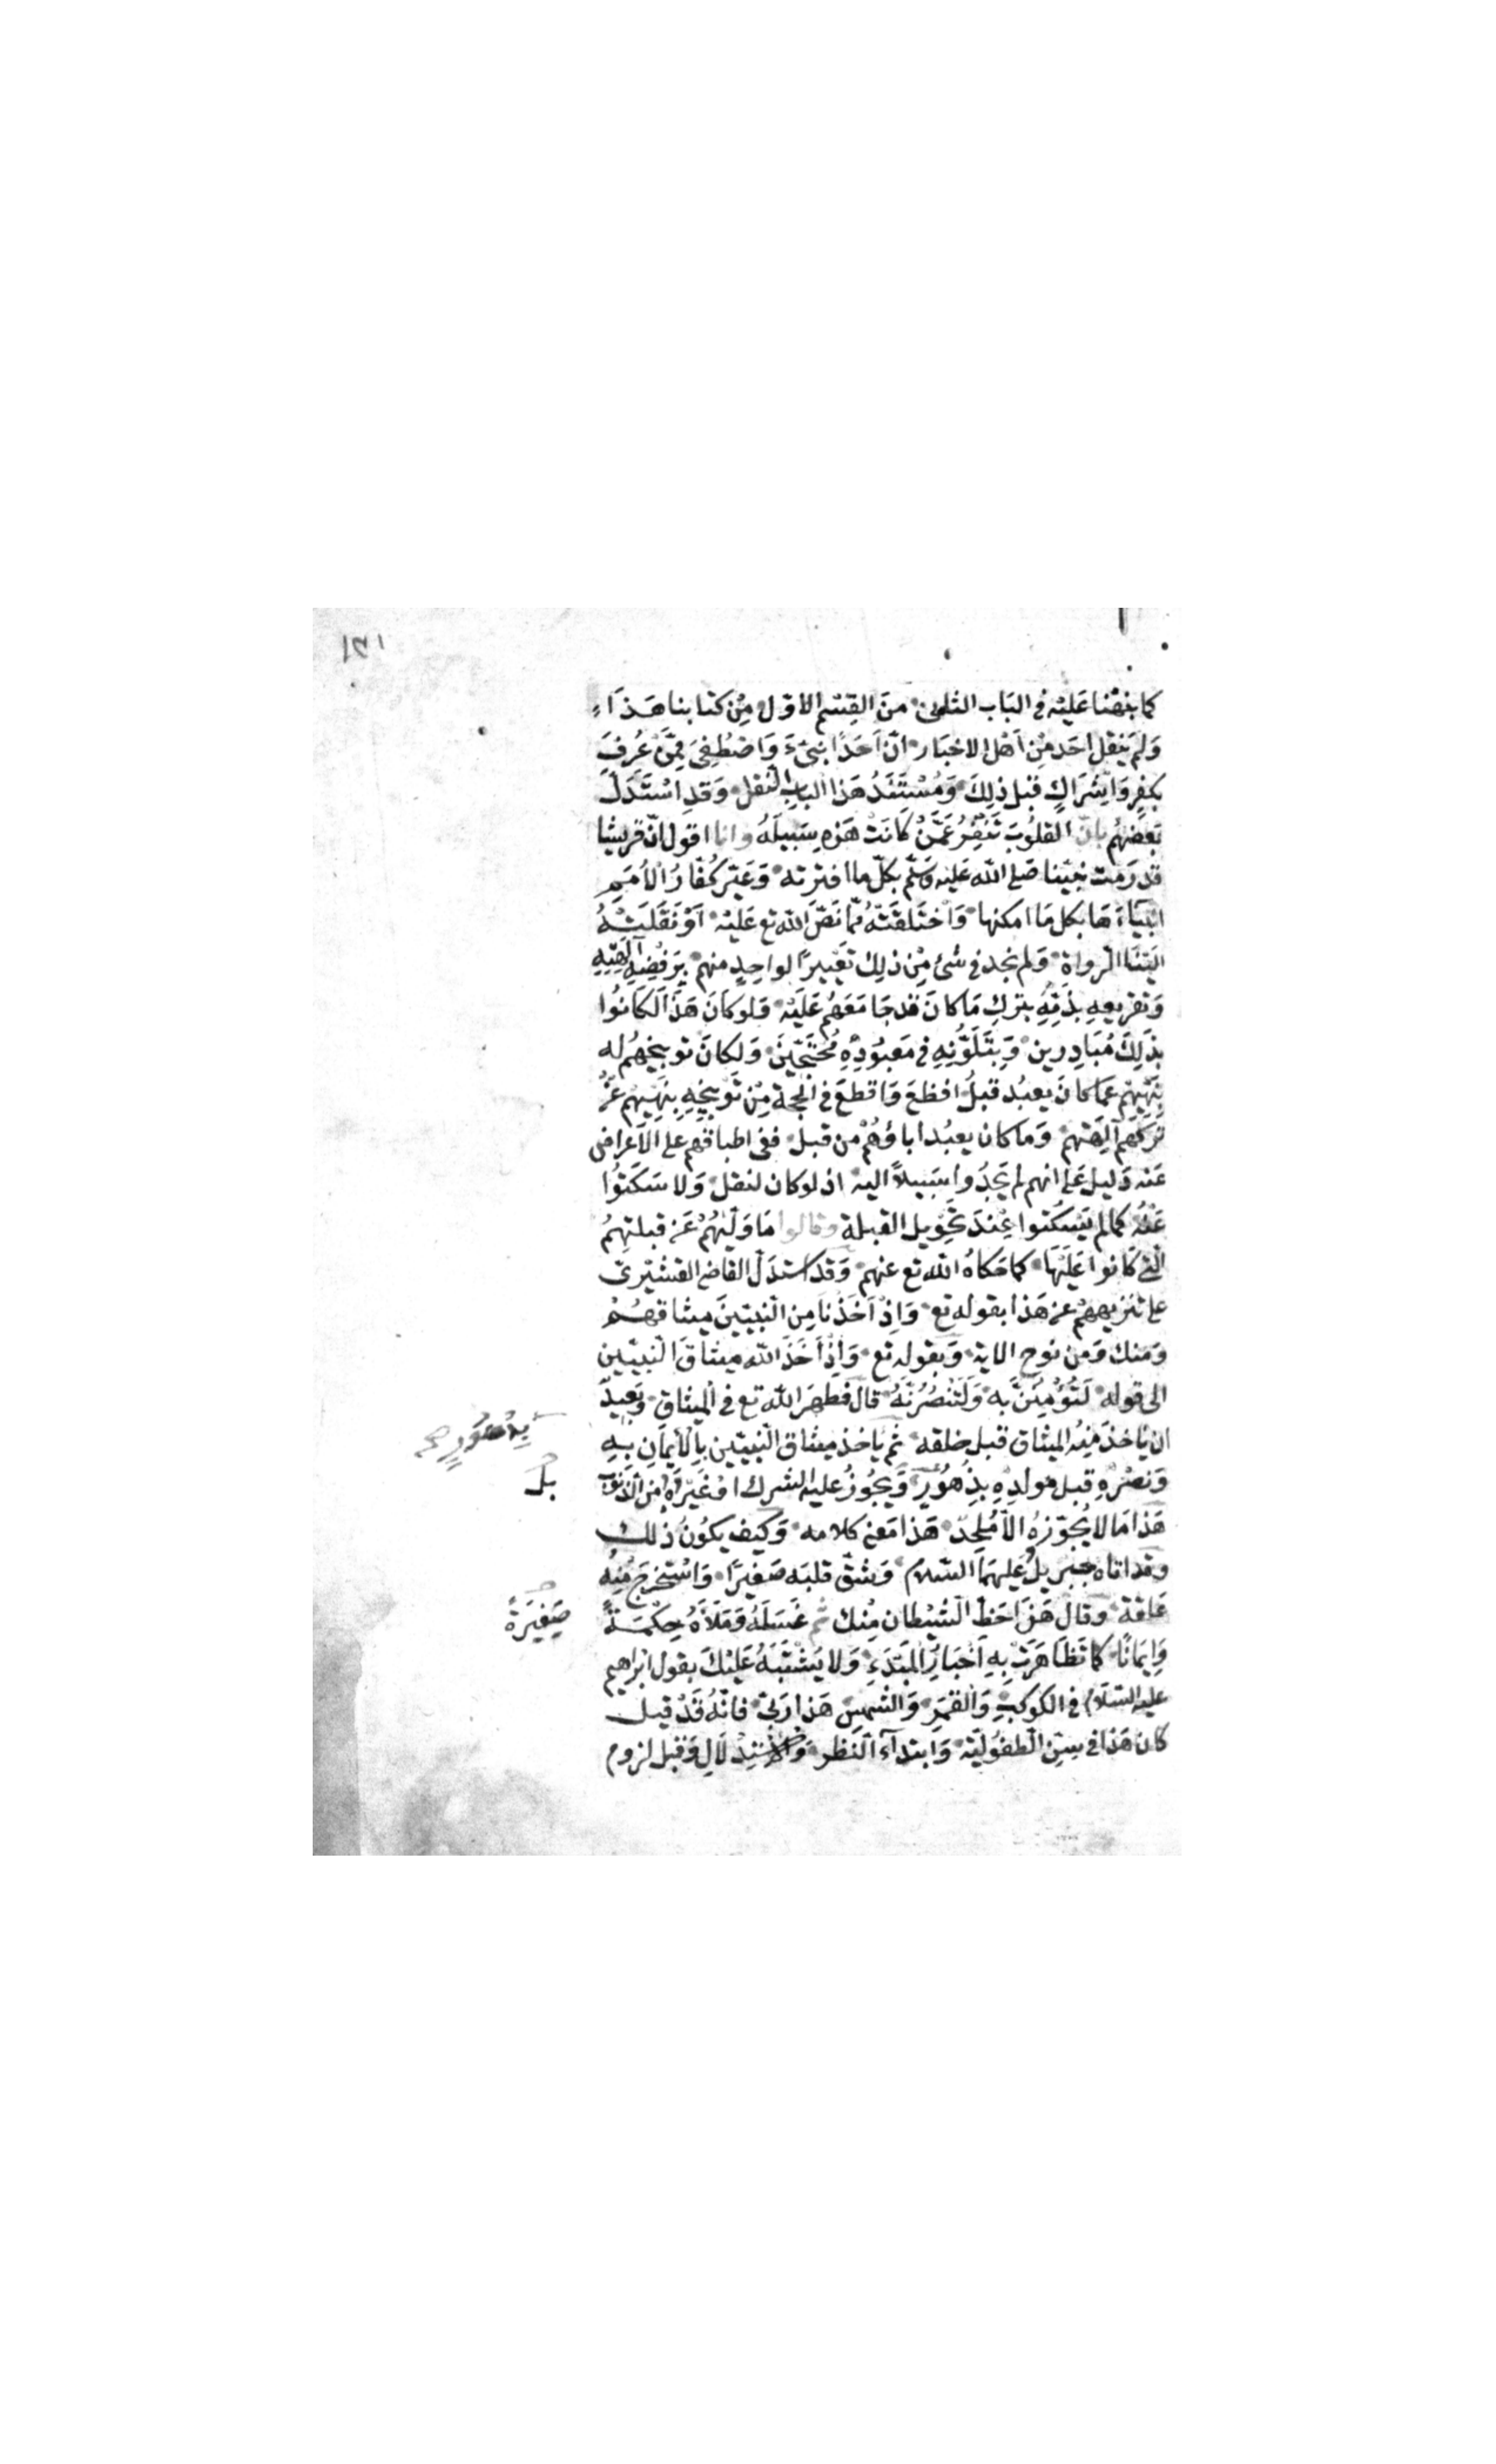 ١٣١
كما نبهنا عليه في الباب الثاني من القسم الاول من كتابنا هذا
وَلم ينقل احَد من اَهل الاخبَار انّ اَحَدًا نبئ وَاصْطُفِيَ ممّن عُرِفَ
بكفرٍ وَاِشرَاكٍ قبل ذلِكَ وَمُسْتَنَدُ هَذا البابِ النقل وَقدِ اسْتَدَلّ
بَعضهُم بانّ القلوُبَ تَنْفِرُ عَمَّنْ كانَتْ هَذه سَبِيلَهُ وانا اقول انّ قريشا
قد رَمَت نبيّنا صَلى الله عَليه وَسَلّم بكلّ ما افترته وَعَيّر كُفّارُ الاُمَمِ
انبيَاءَهَا بكل مَا امكنها وَاختَلقَتهُ ممّا نَصّ الله تع عَليْه اَوْ نَقَلَتْهُ
اليْنَا الرواة وَلم نجد في شئ مِن ذلِك تَعْيِيرًا لواحِدٍ منهم برَفضِهِ آلِهَتِهِ
وَتقريعِهِ بذَمّهِ بتركِ مَا كانَ قد جَامَعَهُم عَليْه وَلوكانَ هَذا لكانُوا
بذَلِكَ مُبَادِرين وَبتَلَوُّنِهِ في مَعبُودِهِ مُحتَجّينَ وَلكانَ توبيخهُم له
بنَهْيِهِم عمّا كانَ يعبُد قبلُ افظعَ وَاقطعَ في الحجة مِن تَوبيخِهِ بِنَهْيِهِم عَنْ
تَرْكِهِم آلِهَتهم وَما كان يعبُد اباؤهُمْ من قبل ففي اطباقهم على الاعراض
عَنه دَليل عَلى انهم لم يَجِدُوا سَبيلاً اليه اذ لوكان لنقل وَلا سَكَتُوا
عَنْهُ كما لم يَسكتوا عِندَ تحْوِيل القبلة وقالوا مَا وَلّٰيهُمْ عَن قبلتِهِمُ
الّتي كانوا عَليْهَا كما حَكاهُ الله تع عنهم وَقد استدَلّ القاضي القشيريّ
على تنزيههم عن هَذا بقوله تع وَاِذْ اَخَذْنَا مِن النّبيّينَ ميثاقهُمْ
وَمنك وَمن نوح الاية وَبقوله تع وَاِذْ اَخَذَ الله ميثاقَ النّبيّين
الى قوله لَتُؤْمِنُنَّ بِه وَلَتَنْصُرُنّهُ قال فطهرَ الله تع في الميثاق وَبَعيدٌ
ان ياخذَ مِنهُ الميثاق قبل خلقه ثم ياخذ ميثاق النّبيّين بالاِيمَانِ بِهِ
وَنصْرهِ قبل مَولدِهِ بدُهُورٍ وَيجُوزُ عليه الشرك اوْ غَيْرُهُ من الذنوب
بدُهُورٍ
بل
هَذا مَا لا يُجَوّزهُ الاّ مُلحِدٌ هَذا مَعنى كلامه وَكيف يكوُنُ ذلك
وقد اتاه جبريلُ عَليهمَا السّلام وَشقّ قلبَه صَغيرًا وَاستخرجَ مِنهُ
عَلقة وقال هَذا حَظّ الشّيْطان مِنك ثم غَسَلَهُ وَمَلاَهُ حِكْمَةً
صَغِيَرةً
وَايمَانًا كما تَظَاهَرَتْ بِهِ اَخبَارُ المبْتَدَءِ وَلا يشتَبهُ عَليْكَ بقول ابراهيم
عليه السّلام في الكوكبِ وَالقمَرِ وَالشمسِ هَذا رَبّي فانّهُ قدْ قيل
كان هَذا في سِنّ الطّفولِيّة وَابتداءِ النّظر وَالاستِدلالِ وَقبل لزوم